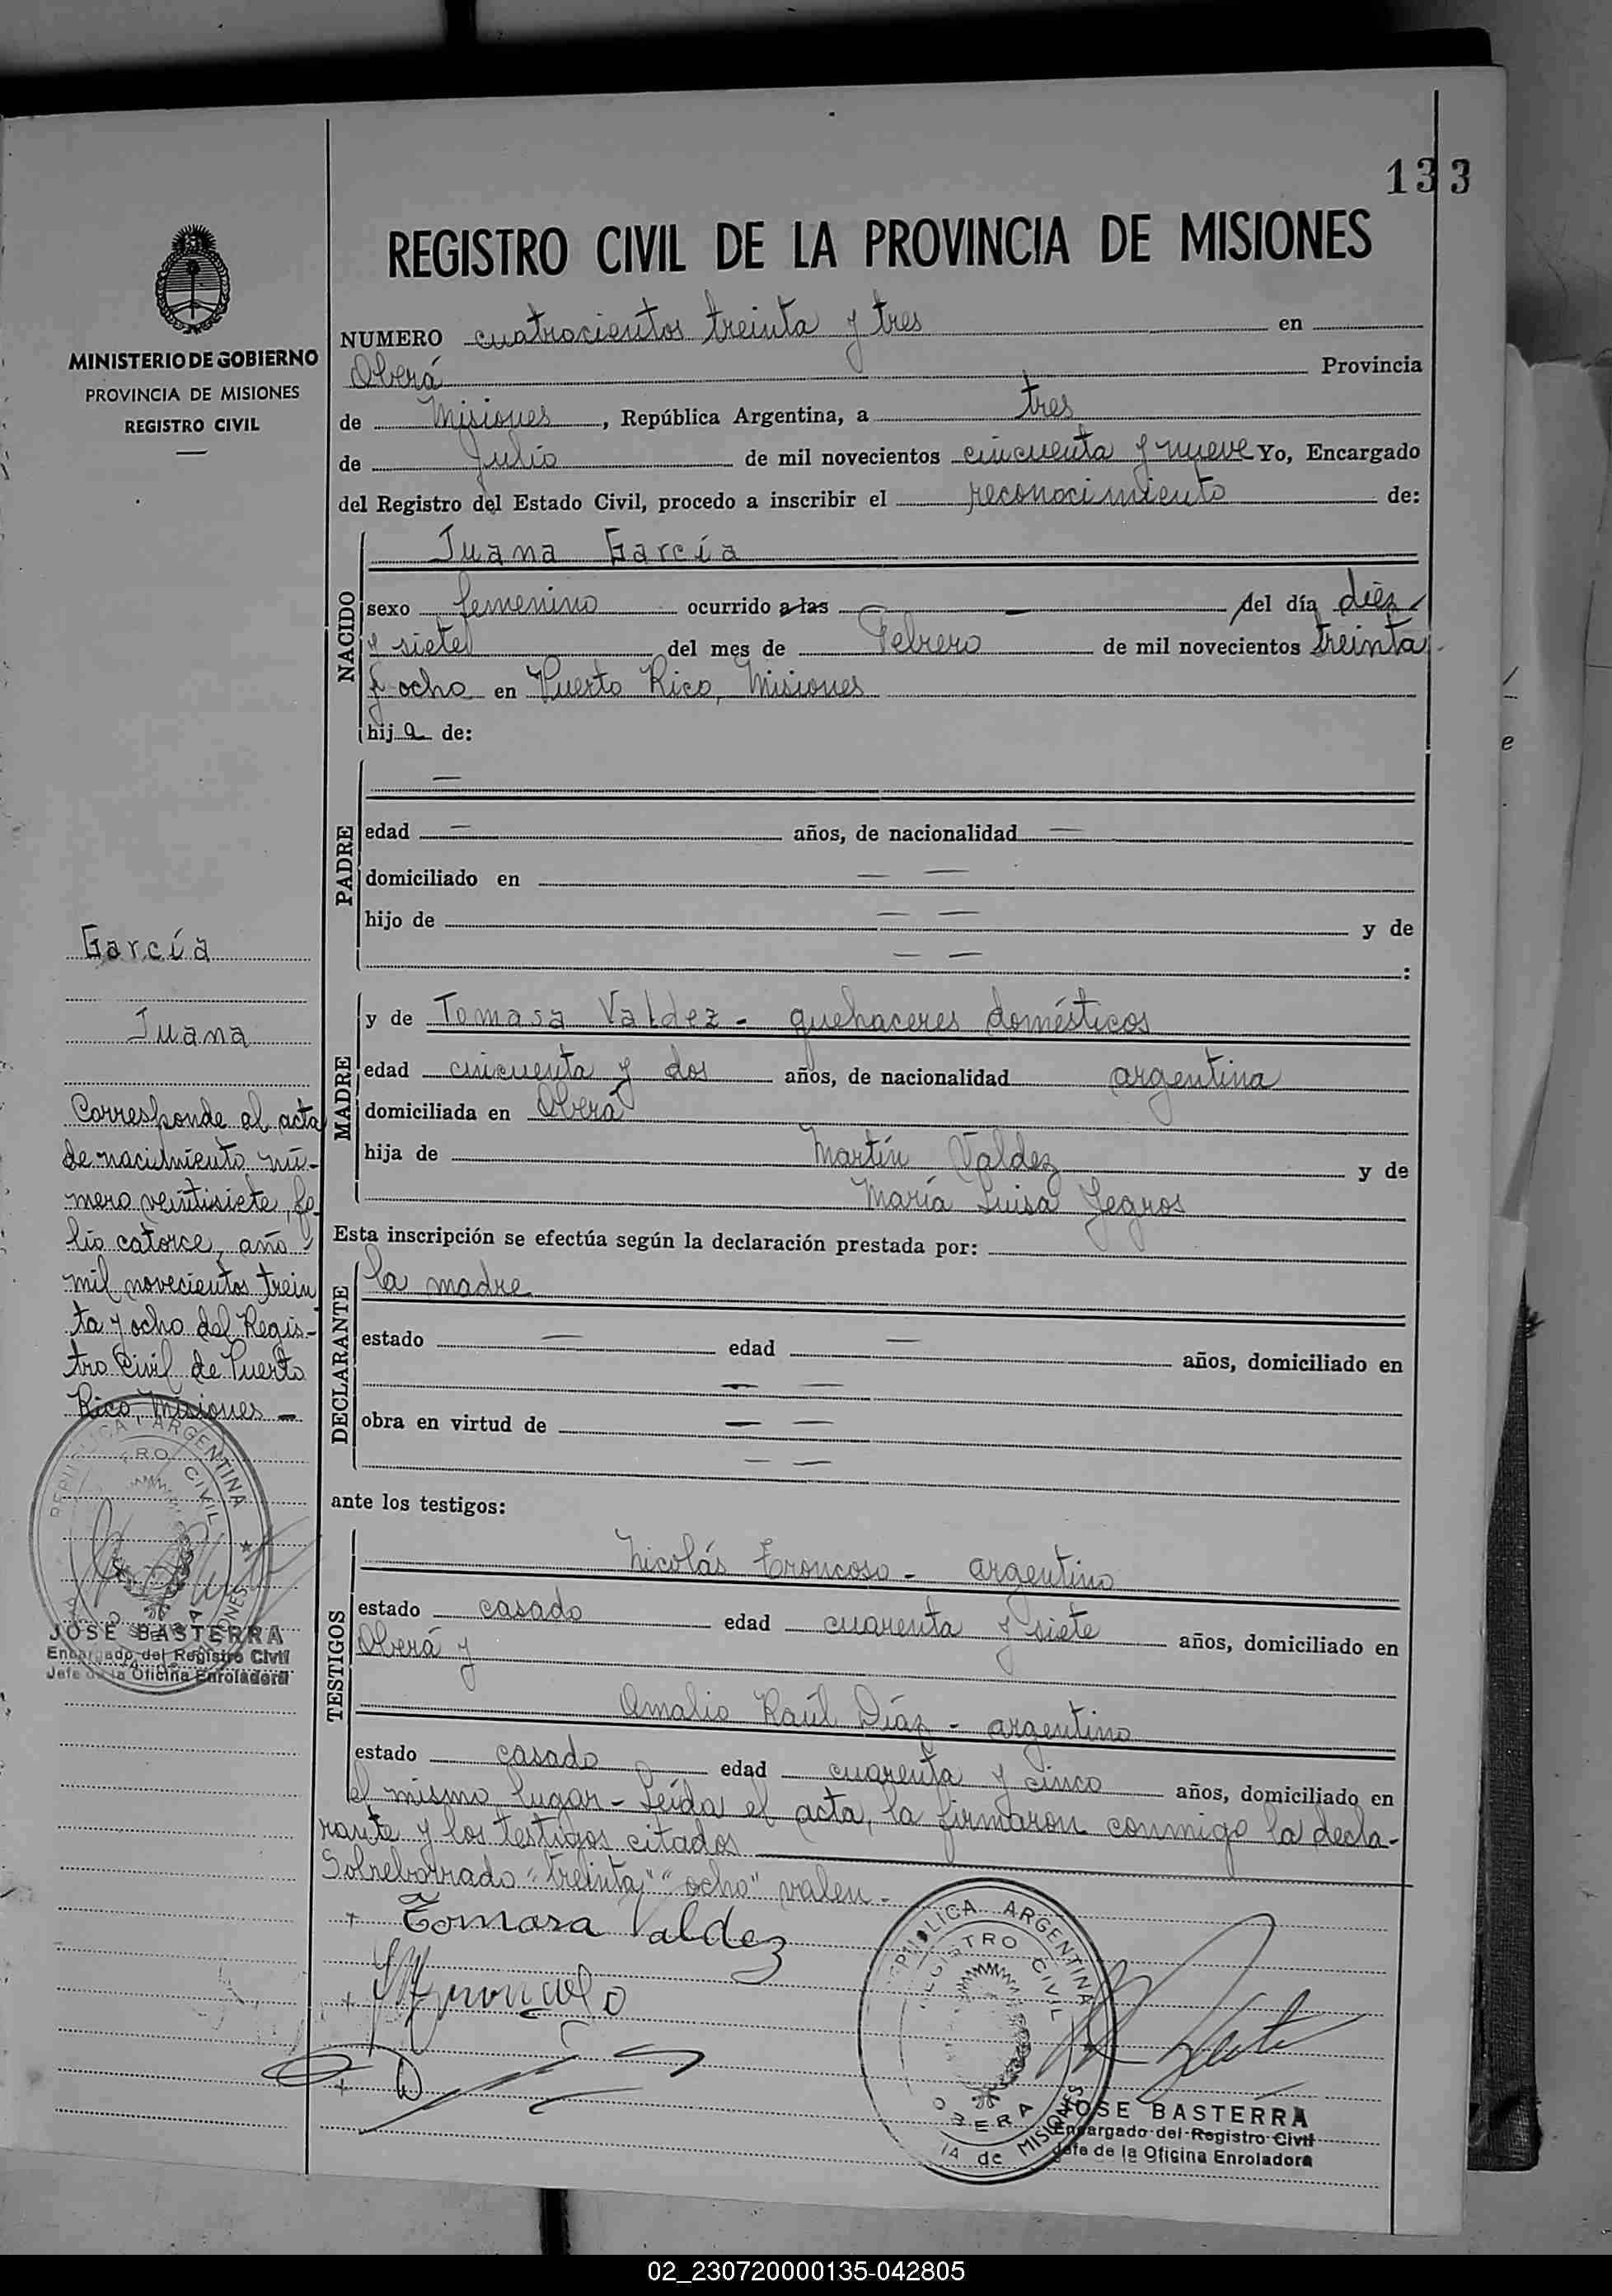 133
REGISTRO CIVIL DE LA PROVINCIA DE MISIONES
MINISTERIO DE GOBIERNO
PROVINCIA DE MISIONES
REGISTRO CIVIL
NUMERO cuatrocientos treinta y tres en
Oberá Provincia
de Misiones, República Argentina, a tres
de Julio de mil novecientos cincuenta y nueve Yo, Encargado
del Registro del Estado Civil, procedo a inscribir el reconocimiento de:
NACIDO
Juana García
sexo femenino ocurrido a las — del día diez
y siete del mes de Febrero de mil novecientos treinta
y ocho en Puerto Rico, Misiones
hija de:
PADRE
—
edad — años, de nacionalidad —
domiciliado en — —
hijo de — — y de
— — :
MADRE
y de Tomasa Valdez - quehaceres domésticos
edad cincuenta y dos años, de nacionalidad argentina
domiciliada en Oberá
hija de Martín Valdez y de
María Luisa Yegros
Esta inscripción se efectúa según la declaración prestada por:
DECLARANTE
la madre
estado — edad — años, domiciliado en
— —
obra en virtud de — —
— —
ante los testigos:
TESTIGOS
Nicolás Troncoso - argentino
estado casado edad cuarenta y siete años, domiciliado en
Oberá y
Amalio Raúl Díaz - argentino
estado casado edad cuarenta y cinco años, domiciliado en
el mismo lugar - Leída el acta, la firmaron conmigo la decla-
rante y los testigos citados
Sobreborrado "treinta" "ocho" valen.-
+ Tomasa Valdez
García
Juana
Corresponde al acta
de nacimiento nú-
mero veintisiete, fo
lio catorce, año
mil novecientos trein
ta y ocho del Regis-
tro Civil de Puerto
Rico, Misiones -
REPUBLICA ARGENTINA
REGISTRO CIVIL
JOSE BASTERRA
Encargado del Registro Civil
Jefe de la Oficina Enroladora
REPUBLICA ARGENTINA
REGISTRO CIVIL
OBERA
IA de MISIONES
JOSE BASTERRA
Encargado del Registro Civil
Jefe de la Oficina Enroladora
e
02_230720000135-042805